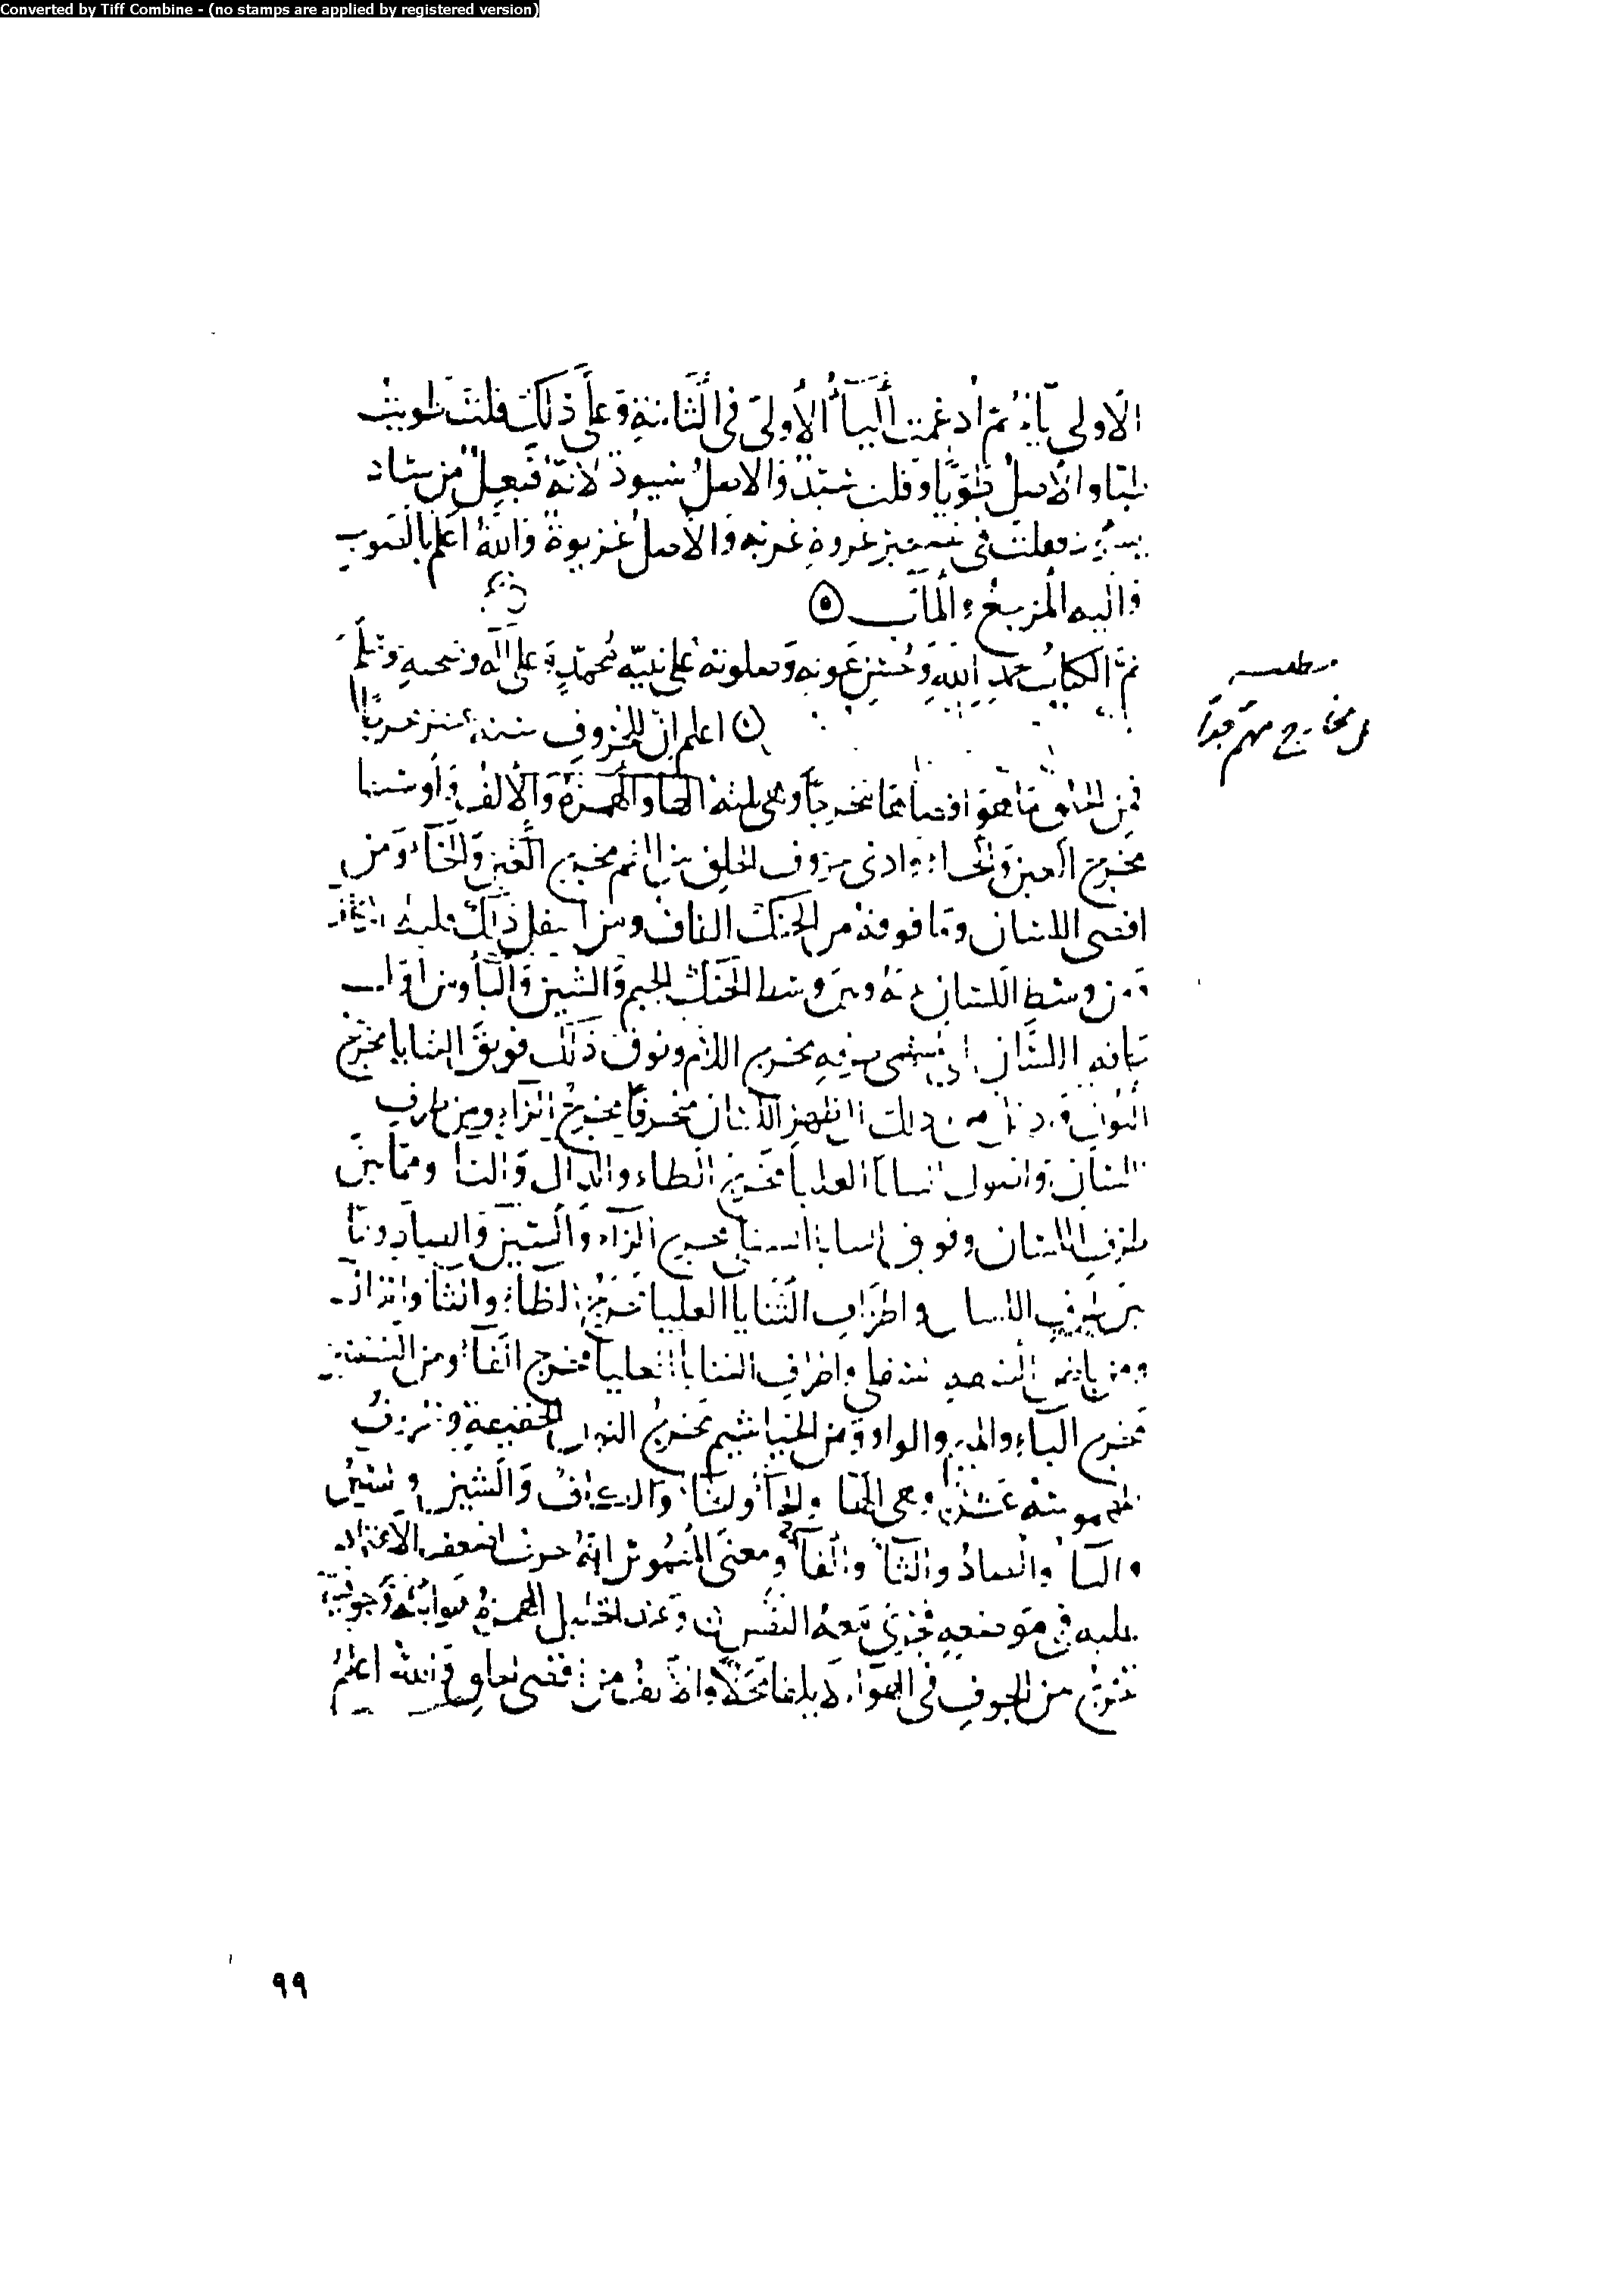 Converted by Tiff Combine - (no stamps are applied by registered version)
الأولى ياءً ثم أدغمت الياءُ الأولى في الثانية وعلى ذلك قلت طويت
طيًا والأصل طويًا وقلت سيّد والأصل سيود لأنه فيعل من ساد
يسود وقلت في تصغير عروة عرية والأصل عريوة والله أعلم بالصواب
وإليه المرجع والمآب
تمّ الكتاب بحمد الله وحسن عونه وصلوته على نبيّه محمّد وعلى آله وصحبه وسلم
مطلب
مخارج مهم جدا
اعلم انّ للحروف ستة عشر مخرجًا
فمن الحلق ما هو اقصاها مخرجًا وهي ثلثة الهاء والهمزة والألف وأوسطها
مخرج العين والحاء وادنى حروف الحلق من الفم مخرج الغين والخاء ومن
اقصى اللسان وما فوقه من الحنك القاف ومن اسفل ذلك قليلا الكاف
ومن وسط اللسان بينه وبين وسط الحنك الجيم والشين والياء ومن أول
حافة اللسان الى منتهى طرفه مخرج اللام وفوق ذلك فويق الثنايا مخرج
النون ذلك الى ظهر اللسان منحرفا مخرج الراء ومن طرف
اللسان واصول الثنايا العليا مخرج الطاء والدال والتاء ومما بين
طرف اللسان وفويق الثنايا السفلى مخرج الزاء والسين والصاد ومما
بين طرف اللسان واطراف الثنايا العليا مخرج الظاء والثاء والذال
ومن باطن الشفة السفلى واطراف الثنايا العليا مخرج الفاء ومن الشفتين
مخرج الباء والميم والواو ومن الخياشيم مخرج النون الخفيفة وحروف
الهمس عشرة وهي الهاء والحاء والخاء والكاف والشين والسين
والتاء والصاد والثاء والفاء ومعنى المهموس انه حرف اضعف الاعتماد
عليه في موضعه فجرى معه النفس وعند الخليل الهمزة هوائية وجوفية
تخرج من الجوف في الهواء من اقصى الحلق والله اعلم
٩٩